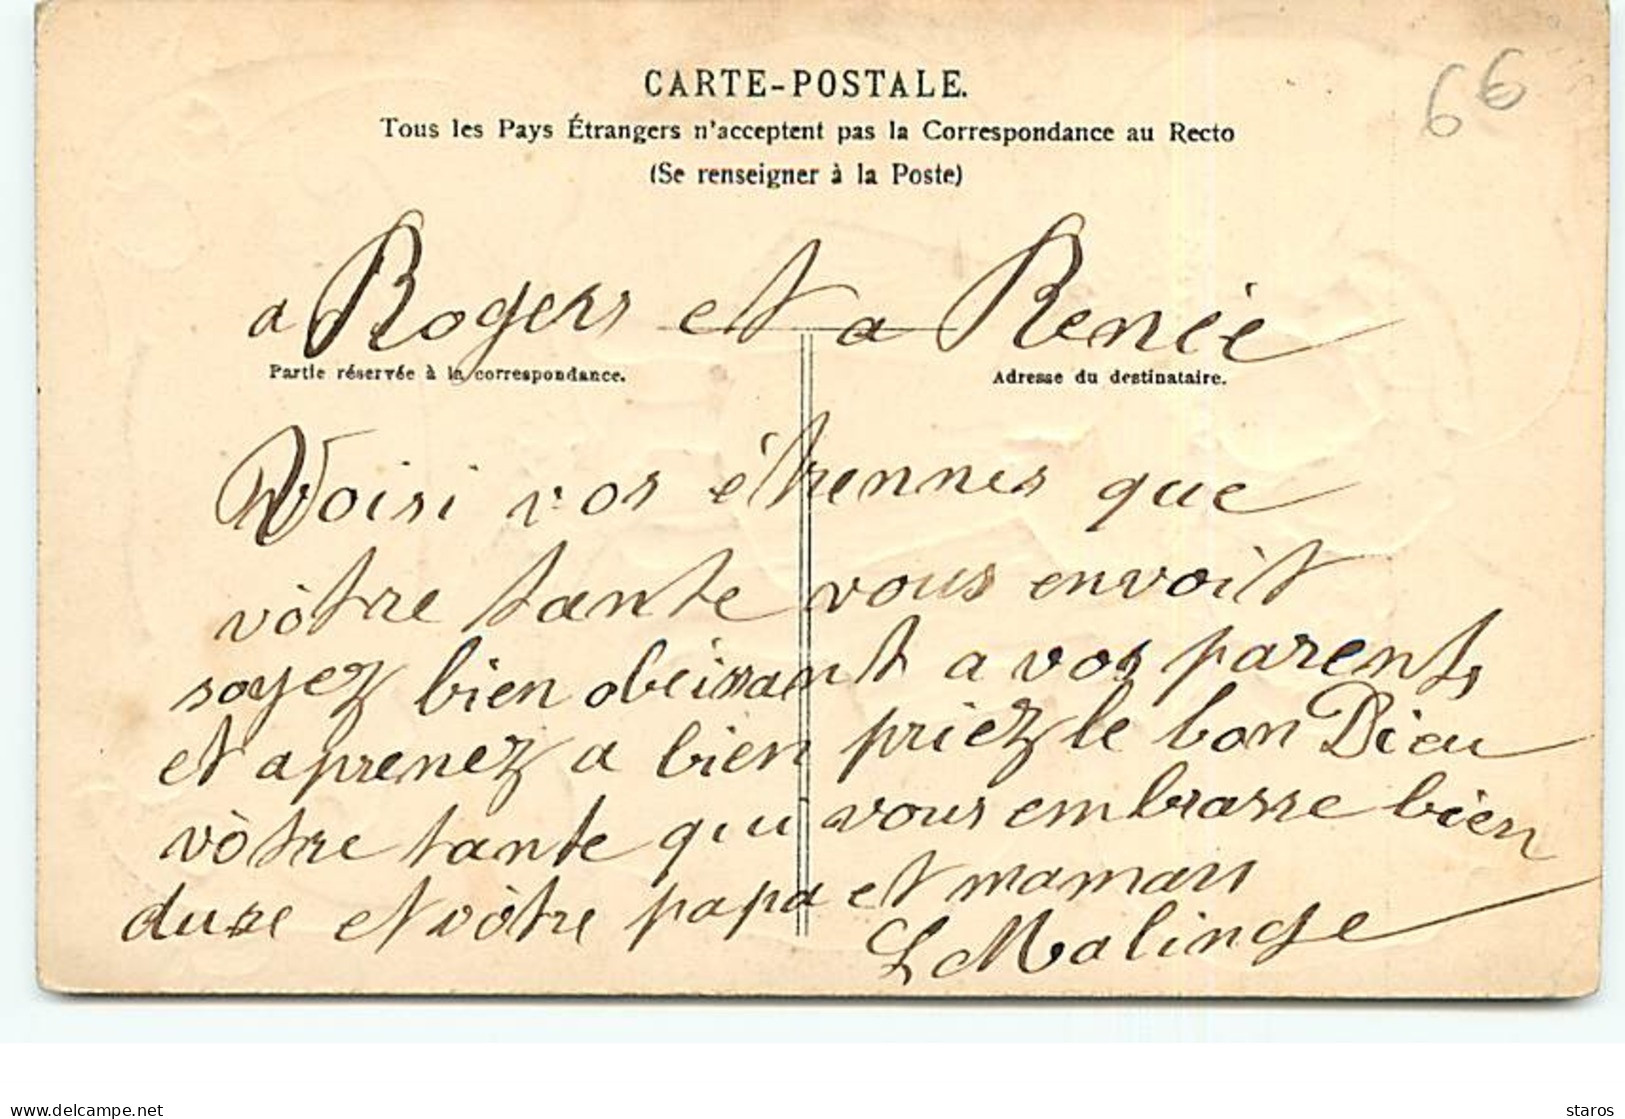 CARTE-POSTALE.
66
Tous les Pays Étrangers n'acceptent pas la Correspondance au Recto
(Se renseigner à la Poste)
a Rogers et a Renée
Partie réservée à la correspondance.
Adresse du destinataire.
Voisi vos étrennes que
vòtre tante vous envoit
soyez bien obeissant a vos parents
et aprenez a bien priez le bon Dieu
vòtre tante qui vous embrasse bien
et vòtre papa et maman
L Malinge
delcampe.net
staros